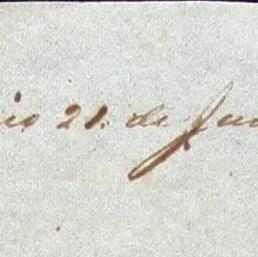 io 21. de Jun